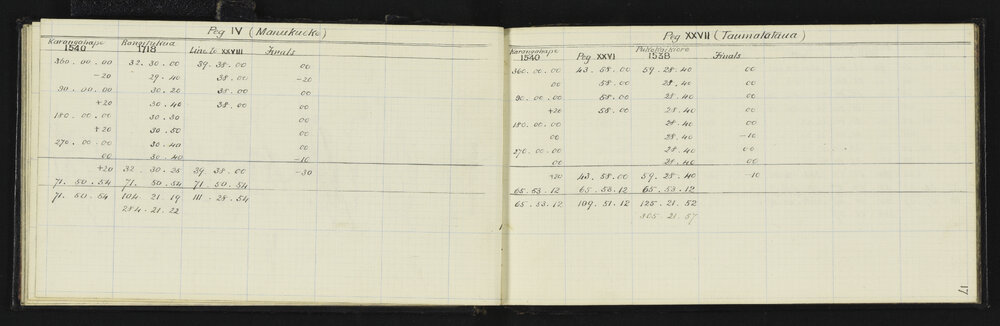 Peg IV (Manukueke)
Karangahape Rangitukua Line to XXVIII Finals
1540 1718
360.00.00 32.30.00 39.38.00 00
-20 29.40 38.00 -20
90.00.00 30.20 38.00 00
+20 30.40 38.00 00
180.00.00 30.30 00
+20 30.50 00
270.00.00 30.40 00
00 30.40 -10
+20 32.30.25 39.38.00 -30
71.50.54 71.50.54 71.50.54
71.50.54 104.21.19 111.28.54
284.21.22
Peg XXVII (Taumatakiua)
Karangahape Peg XXVI Pukekaikiore Finals
1540 1538
360.00.00 43.58.00 59.28.40 00
00 58.00 28.40 00
90.00.00 58.00 28.40 00
+20 58.00 28.40 00
180.00.00 28.40 00
00 28.40 -10
270.00.00 28.40 00
00 28.40 00
+20 43.58.00 59.28.40 -10
65.53.12 65.53.12 65.53.12
65.53.12 109.51.12 125.21.52
305.21.57
17